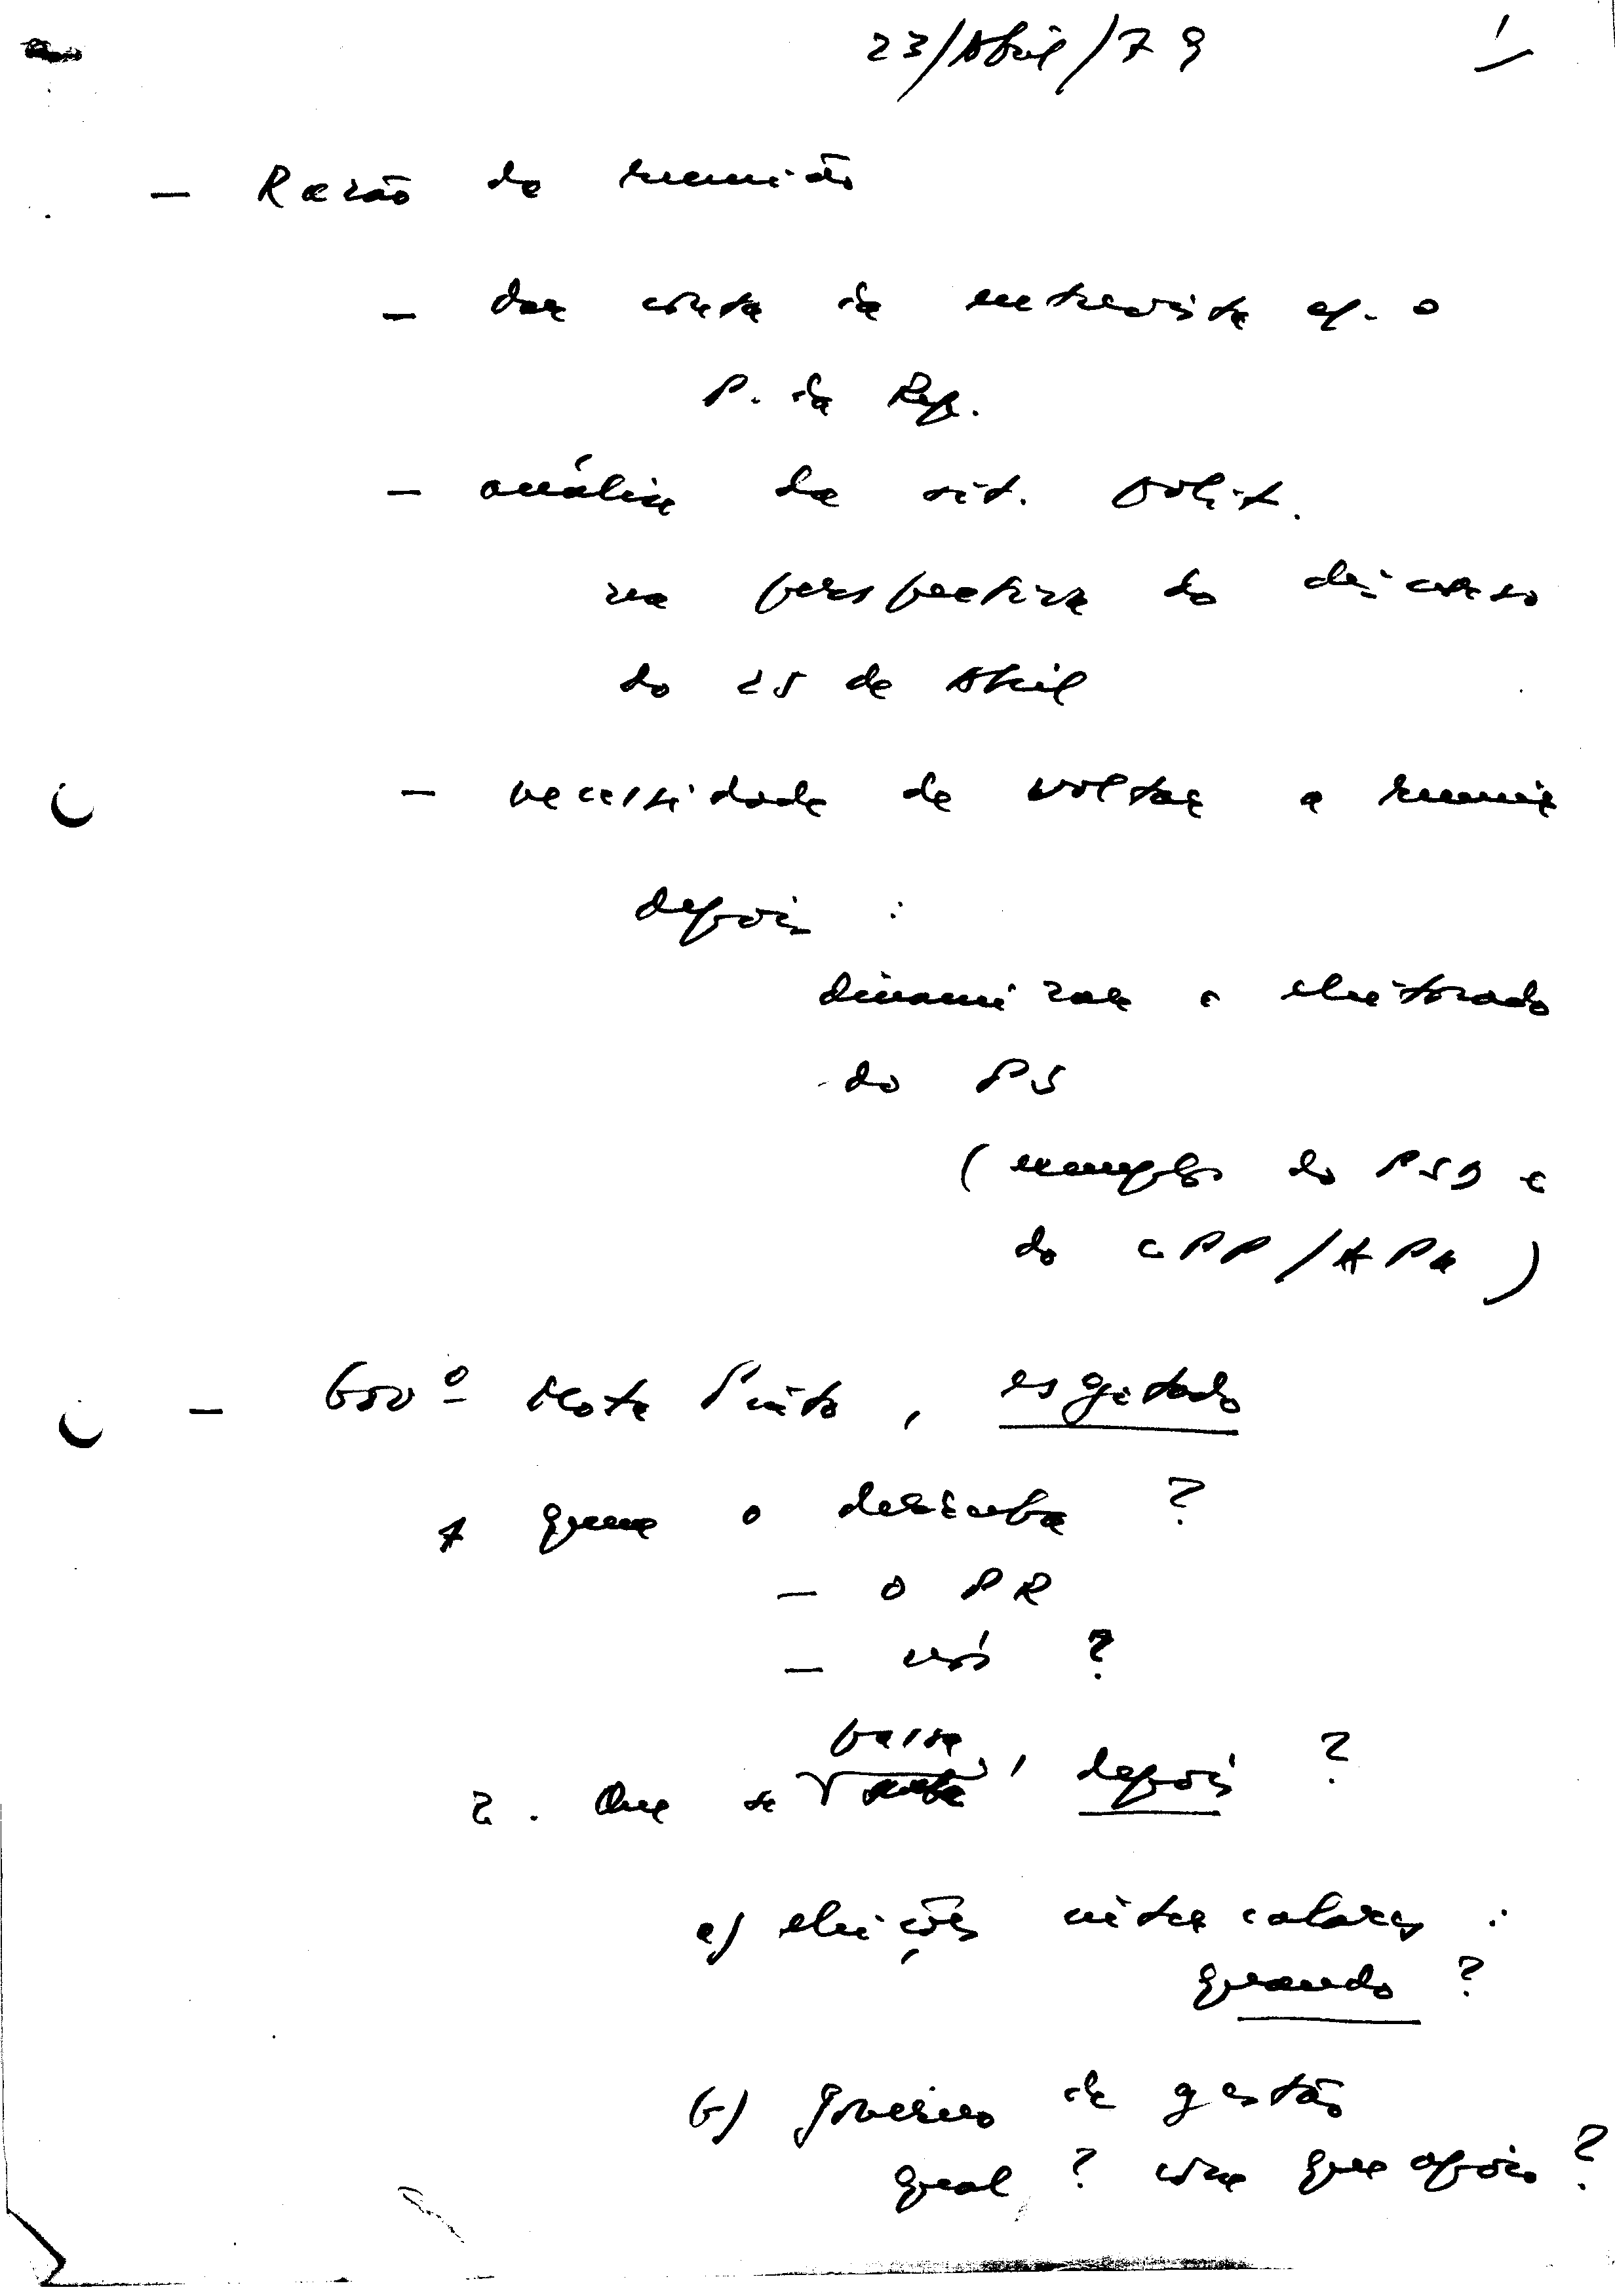 23/Abril/79 1
- Razão da reunião
- dar conta da entrevista c/. o
P. da Rep.
- análise da sit. polit.
na perspectiva do discurso
do 25 de Abril
- necessidade de voltar a reunir
depois :
dinamizar o eleitorado
do PS
(exemplos do PSD e
do CPP/APU)
- Govº Mota Pinto, esgotado
1 quem o derruba ?
- O PR
- nós ?
passa
2. Que se , depois ?
a) eleições intercalares :
quando ?
b) governo de gestão
qual ? com que apoio ?